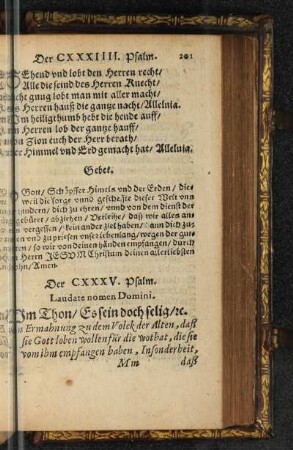 Der CXXXIIII. Psalm. 201
Sehend vnd lobt den Herren recht/
Alle die seind des Herren Knecht/
gnug lobt man mit aller macht/
Herren hauß die gantze nacht/Alleluia.
Im heiligthumb hebt die hende auff/
Herren lob der gantze hauff/
Zion euch der Herr berath/
Himmel vnd Erd gemacht hat/Alleluia.
Gebet.
Gott/Schöpffer Himels vnd der Erden/die
weil die sorge vnnd geschefte dieser Welt vns
hindern/dich zu ehren/vnnd von dem dienst der
abziehen/Verleihe/daß wir alles an
vergessen/kein ander ziel haben/dann dich zu
vnd zu preisen vnser lebenlang/wegen der gut
so wir von deinen händen empfangen/durch
Herrn JESVM Christum deinen allerliebsten
Amen.
Der CXXXV. Psalm.
Laudate nomen Domini.
Im Thon/Es sein doch selig/rc.
Ermahnung zu dem Volck der Alten, daß
sie Gott loben wollen für die wolthat, die sie
von ihm empfangen haben, Insonderheit,
Mm daß